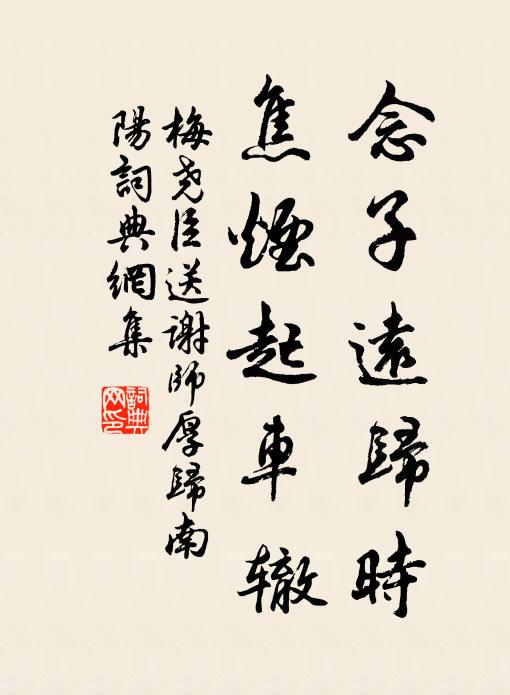 念子遠歸時
焦煙起車辙
梅尭臣送謝師厚歸南
陽詞典網集
詞典网印